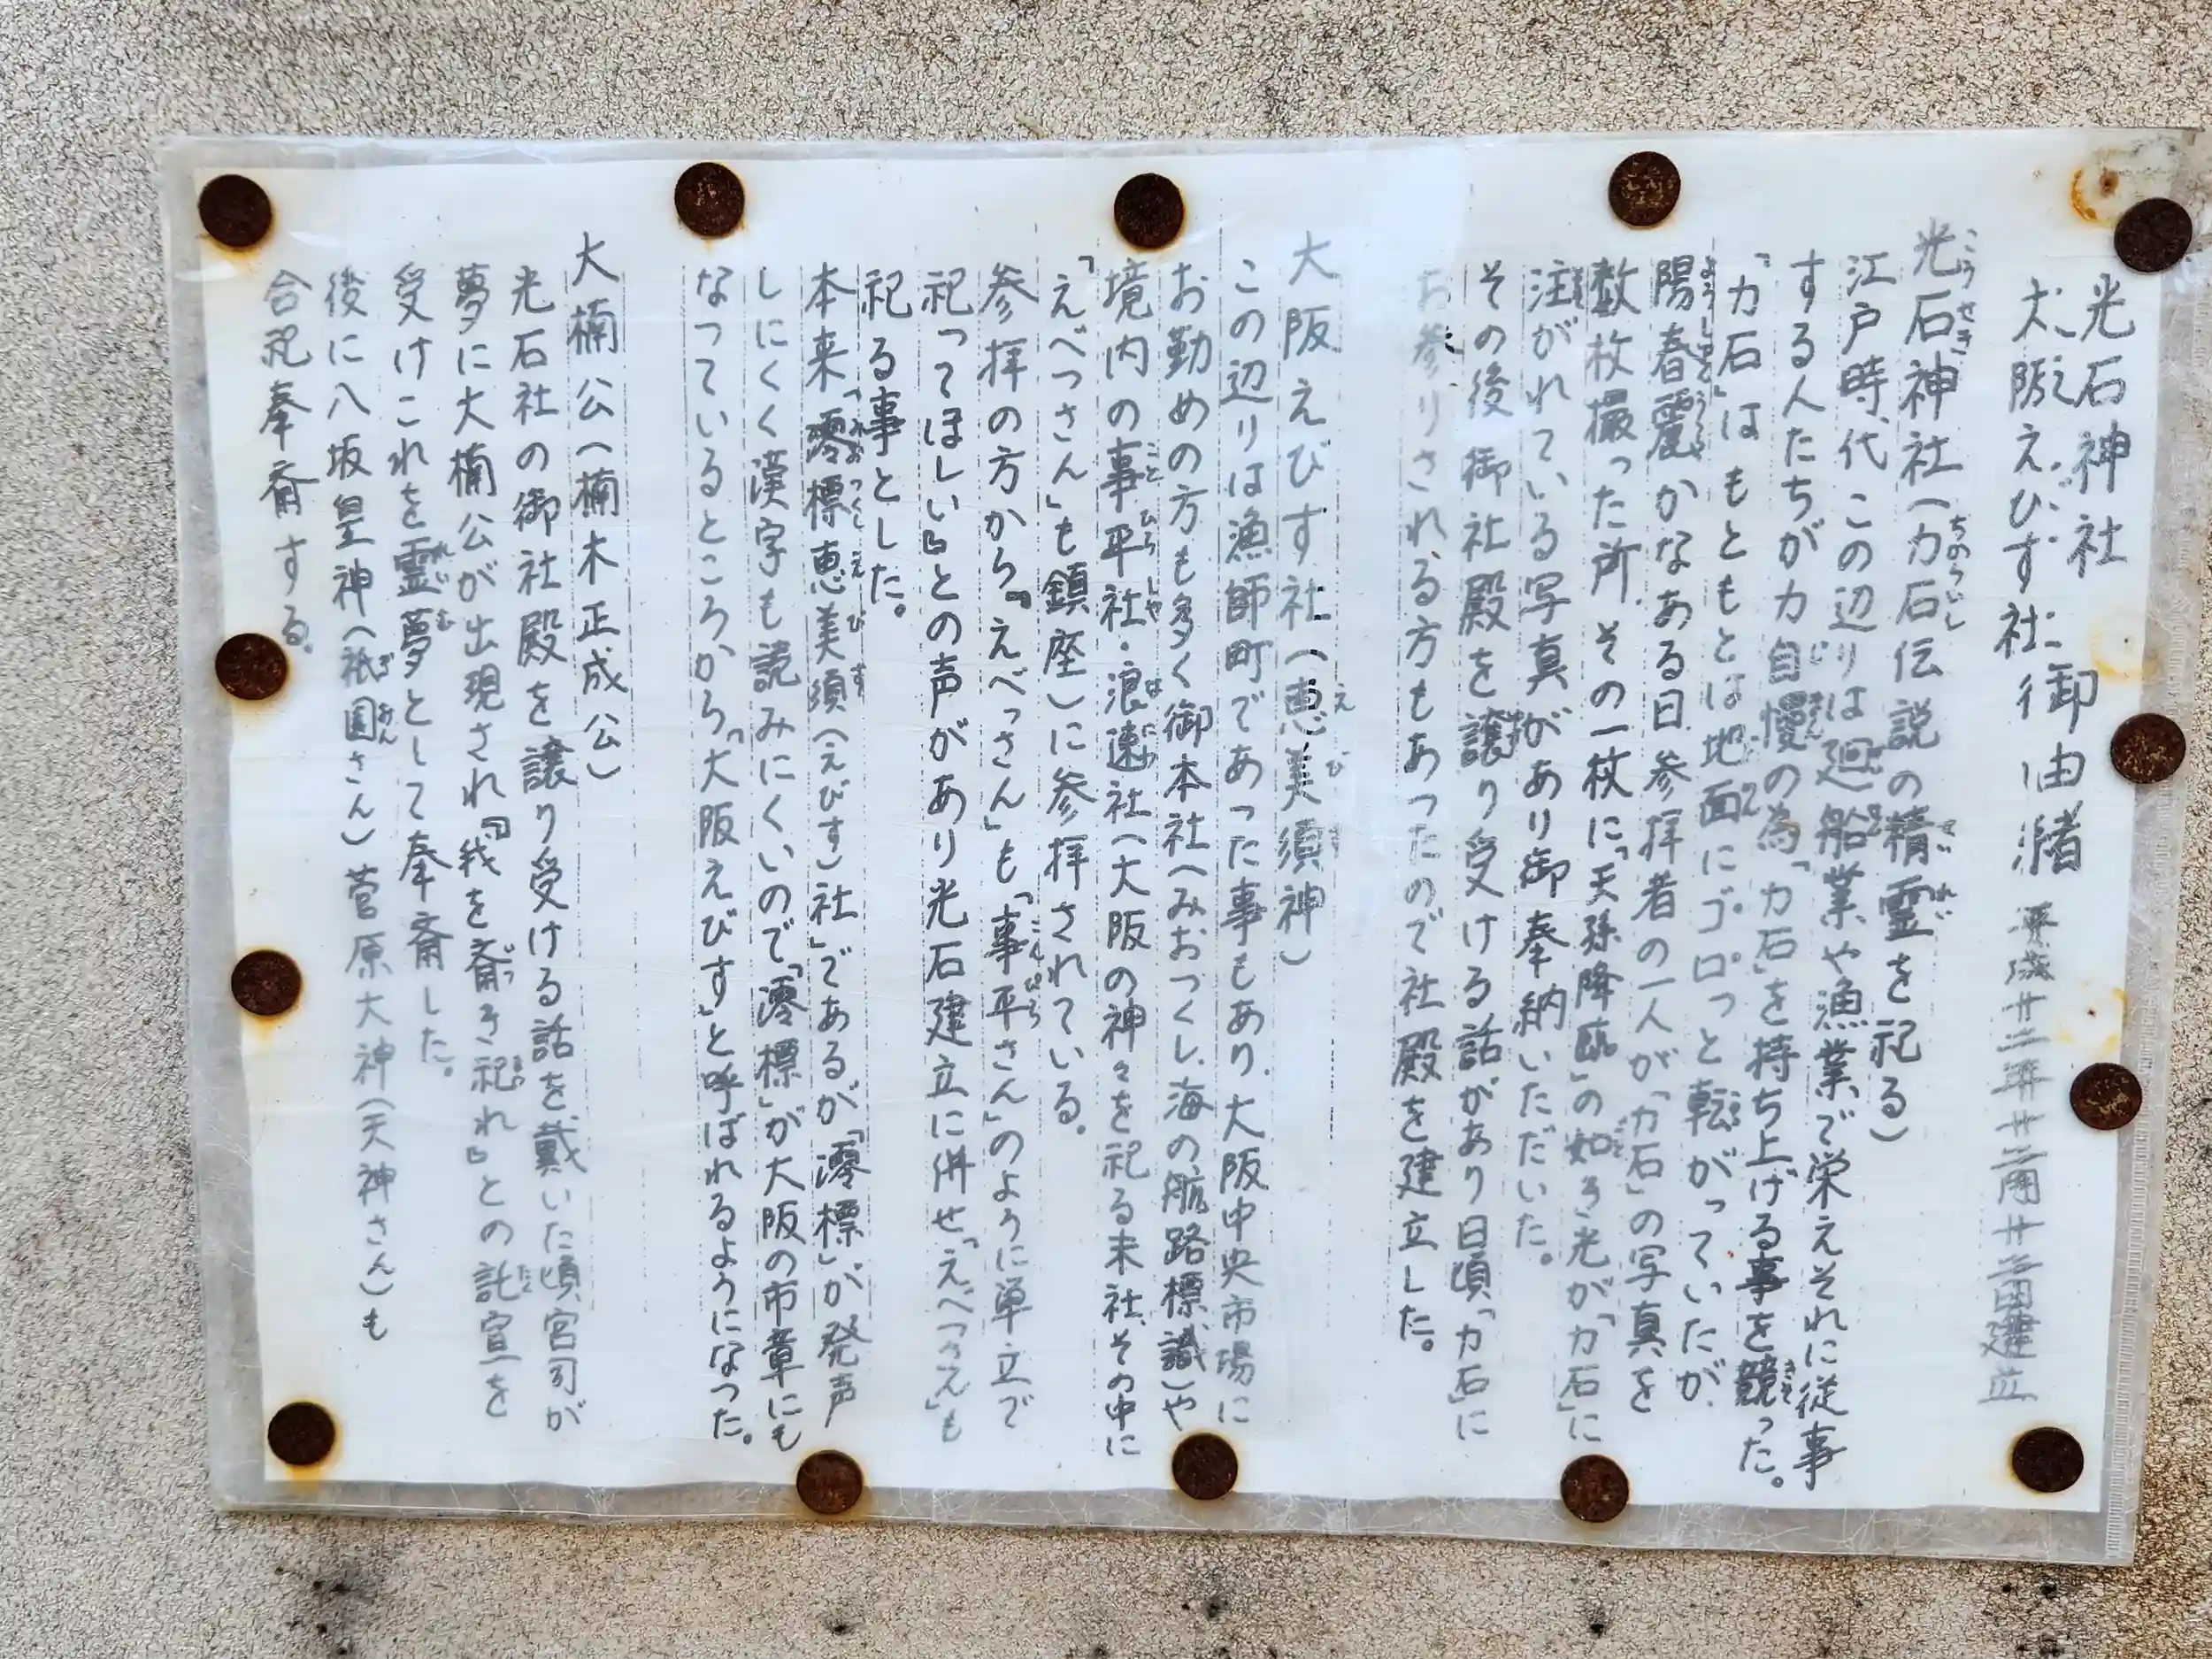 光石神社
大阪えびす社 御由緒
平成廿二年廿二月廿二日建立
光石神社(力石伝説の精霊を祀る)
江戸時代この辺りは廻船業や漁業で栄えそれに従事
する人たちが力自慢の為「力石」を持ち上げる事を競った。
「力石」はもともとは地面にゴロっと転がっていたが、
陽春麗かなある日、参拝者の一人が「力石」の写真を
数枚撮った所、その一枚に「天孫降臨」の如き光が「力石」に
注がれている写真があり御奉納いただいた。
その後御社殿を譲り受ける話があり日頃「力石」に
お参りされる方もあったので社殿を建立した。
大阪えびす社(恵美須神)
この辺りは漁師町であった事もあり、大阪中央市場に
お勤めの方も多く御本社(みおつくし、海の航路標識)や
境内の事平社・浪速社(大阪の神々を祀る末社、その中に
「えべっさん」も鎮座)に参拝されている。
参拝の方から『「えべっさん」も「事平さん」のように単立で
祀ってほしい』との声があり光石建立に併せ「えべっさん」も
祀る事とした。
本来「澪標恵美須(えびす)社」であるが「澪標」が発声
しにくく漢字も読みにくいので「澪標」が大阪の市章にも
なっているところから「大阪えびす」と呼ばれるようになった。
大楠公(楠木正成公)
光石社の御社殿を譲り受ける話を戴いた頃、宮司が
夢に大楠公が出現され『我を斎き祀れ』との託宣を
受けこれを霊夢として奉斎した。
後に八坂皇神(祇園さん)菅原大神(天神さん)も
合祀奉斎する。